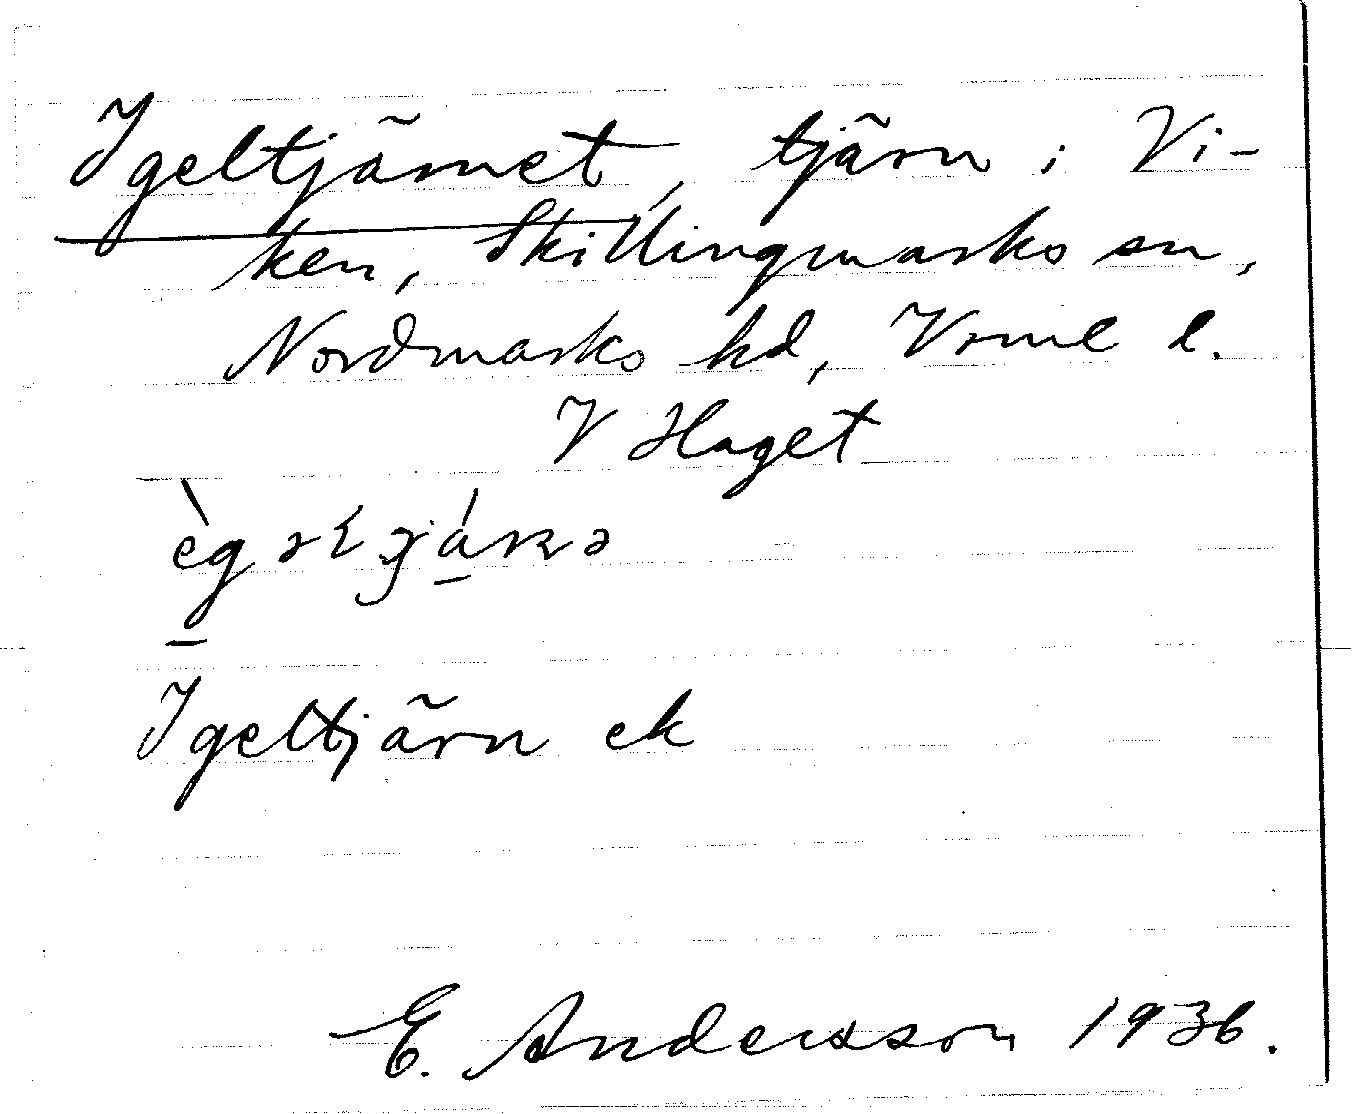 Igeltjärnet, tjärn i Vi-
ken, Skillingmarks sn,
Nordmarks hd, Vrml l.
V Haget
Igeltjärn ek
E. Andersson 1936.